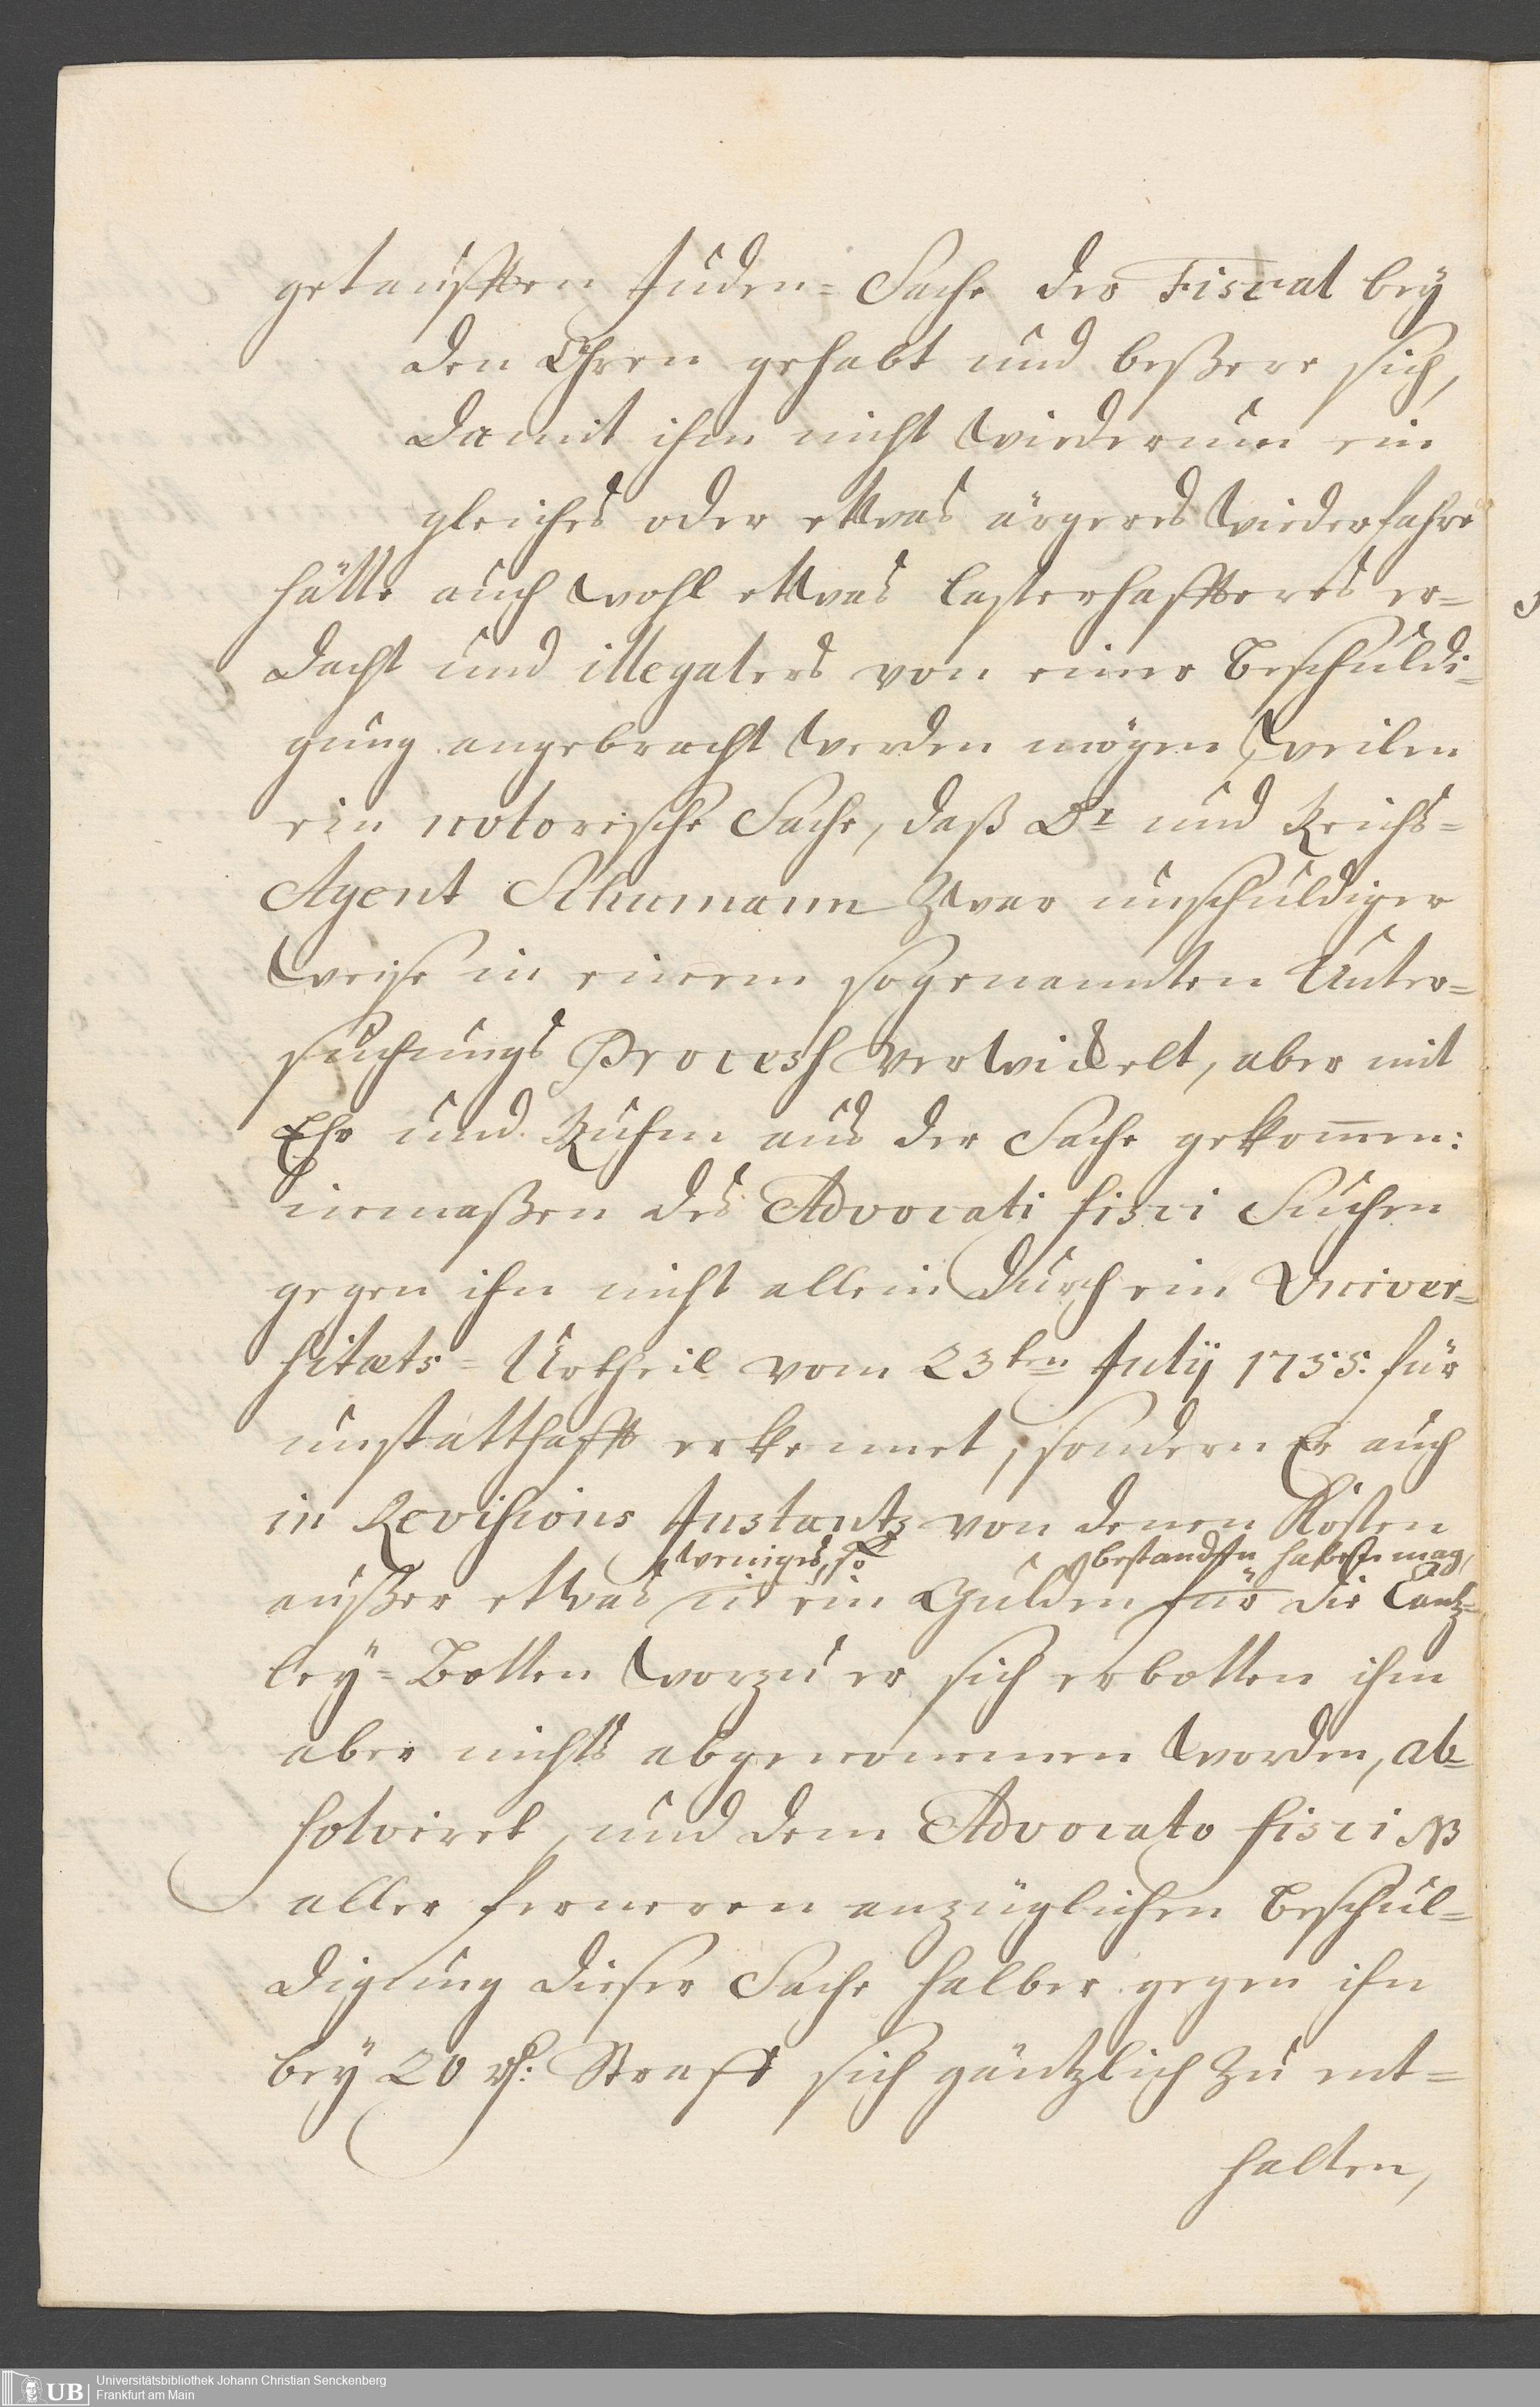 getaufften Juden-Sache der Fiscal bey
den Ohren gehabt und beßere sich,
damit ihm nicht wiederum ein
gleiches oder ettwas ärgeres wiederfahre
hätte auch wohl ettwas lasterhaffteres er-
dacht und illegalers von einer Beschuldi-
gung angebracht werden mögen, weilen
ein notorische Sache, daß Dr und Reichs-
Agent Schumann zwar unschuldiger
Weise in einem sogenannten Unter-
suchungs Process verwickelt, aber mit
Ehr und Ruhm aus der Sache gekommen:
inmaßen des Advocati fisci Suchen
gegen ihn nicht allein durch ein Univer-
sitaets-Urtheil vom 23ten Julij 1755. für
unstatthafft erkennet, sondern Er auch
in Revisions Instantz von denen Kosten
weniges, so bestanden haben mag,
außer ettwas in ein Gulden für die Cantz-
ley-Botten worzu er sich erbotten ihm
aber nichts abgenommen worden, ab-
solviret, und dem Advocato fisci NB
aller ferneren anzüglichen Beschul-
digung dieser Sache halber gegen ihn
bey 20 rh: Straff sich gäntzlich zu ent-
halten,
UB Universitätsbibliothek Johann Christian Senckenberg
Frankfurt am Main